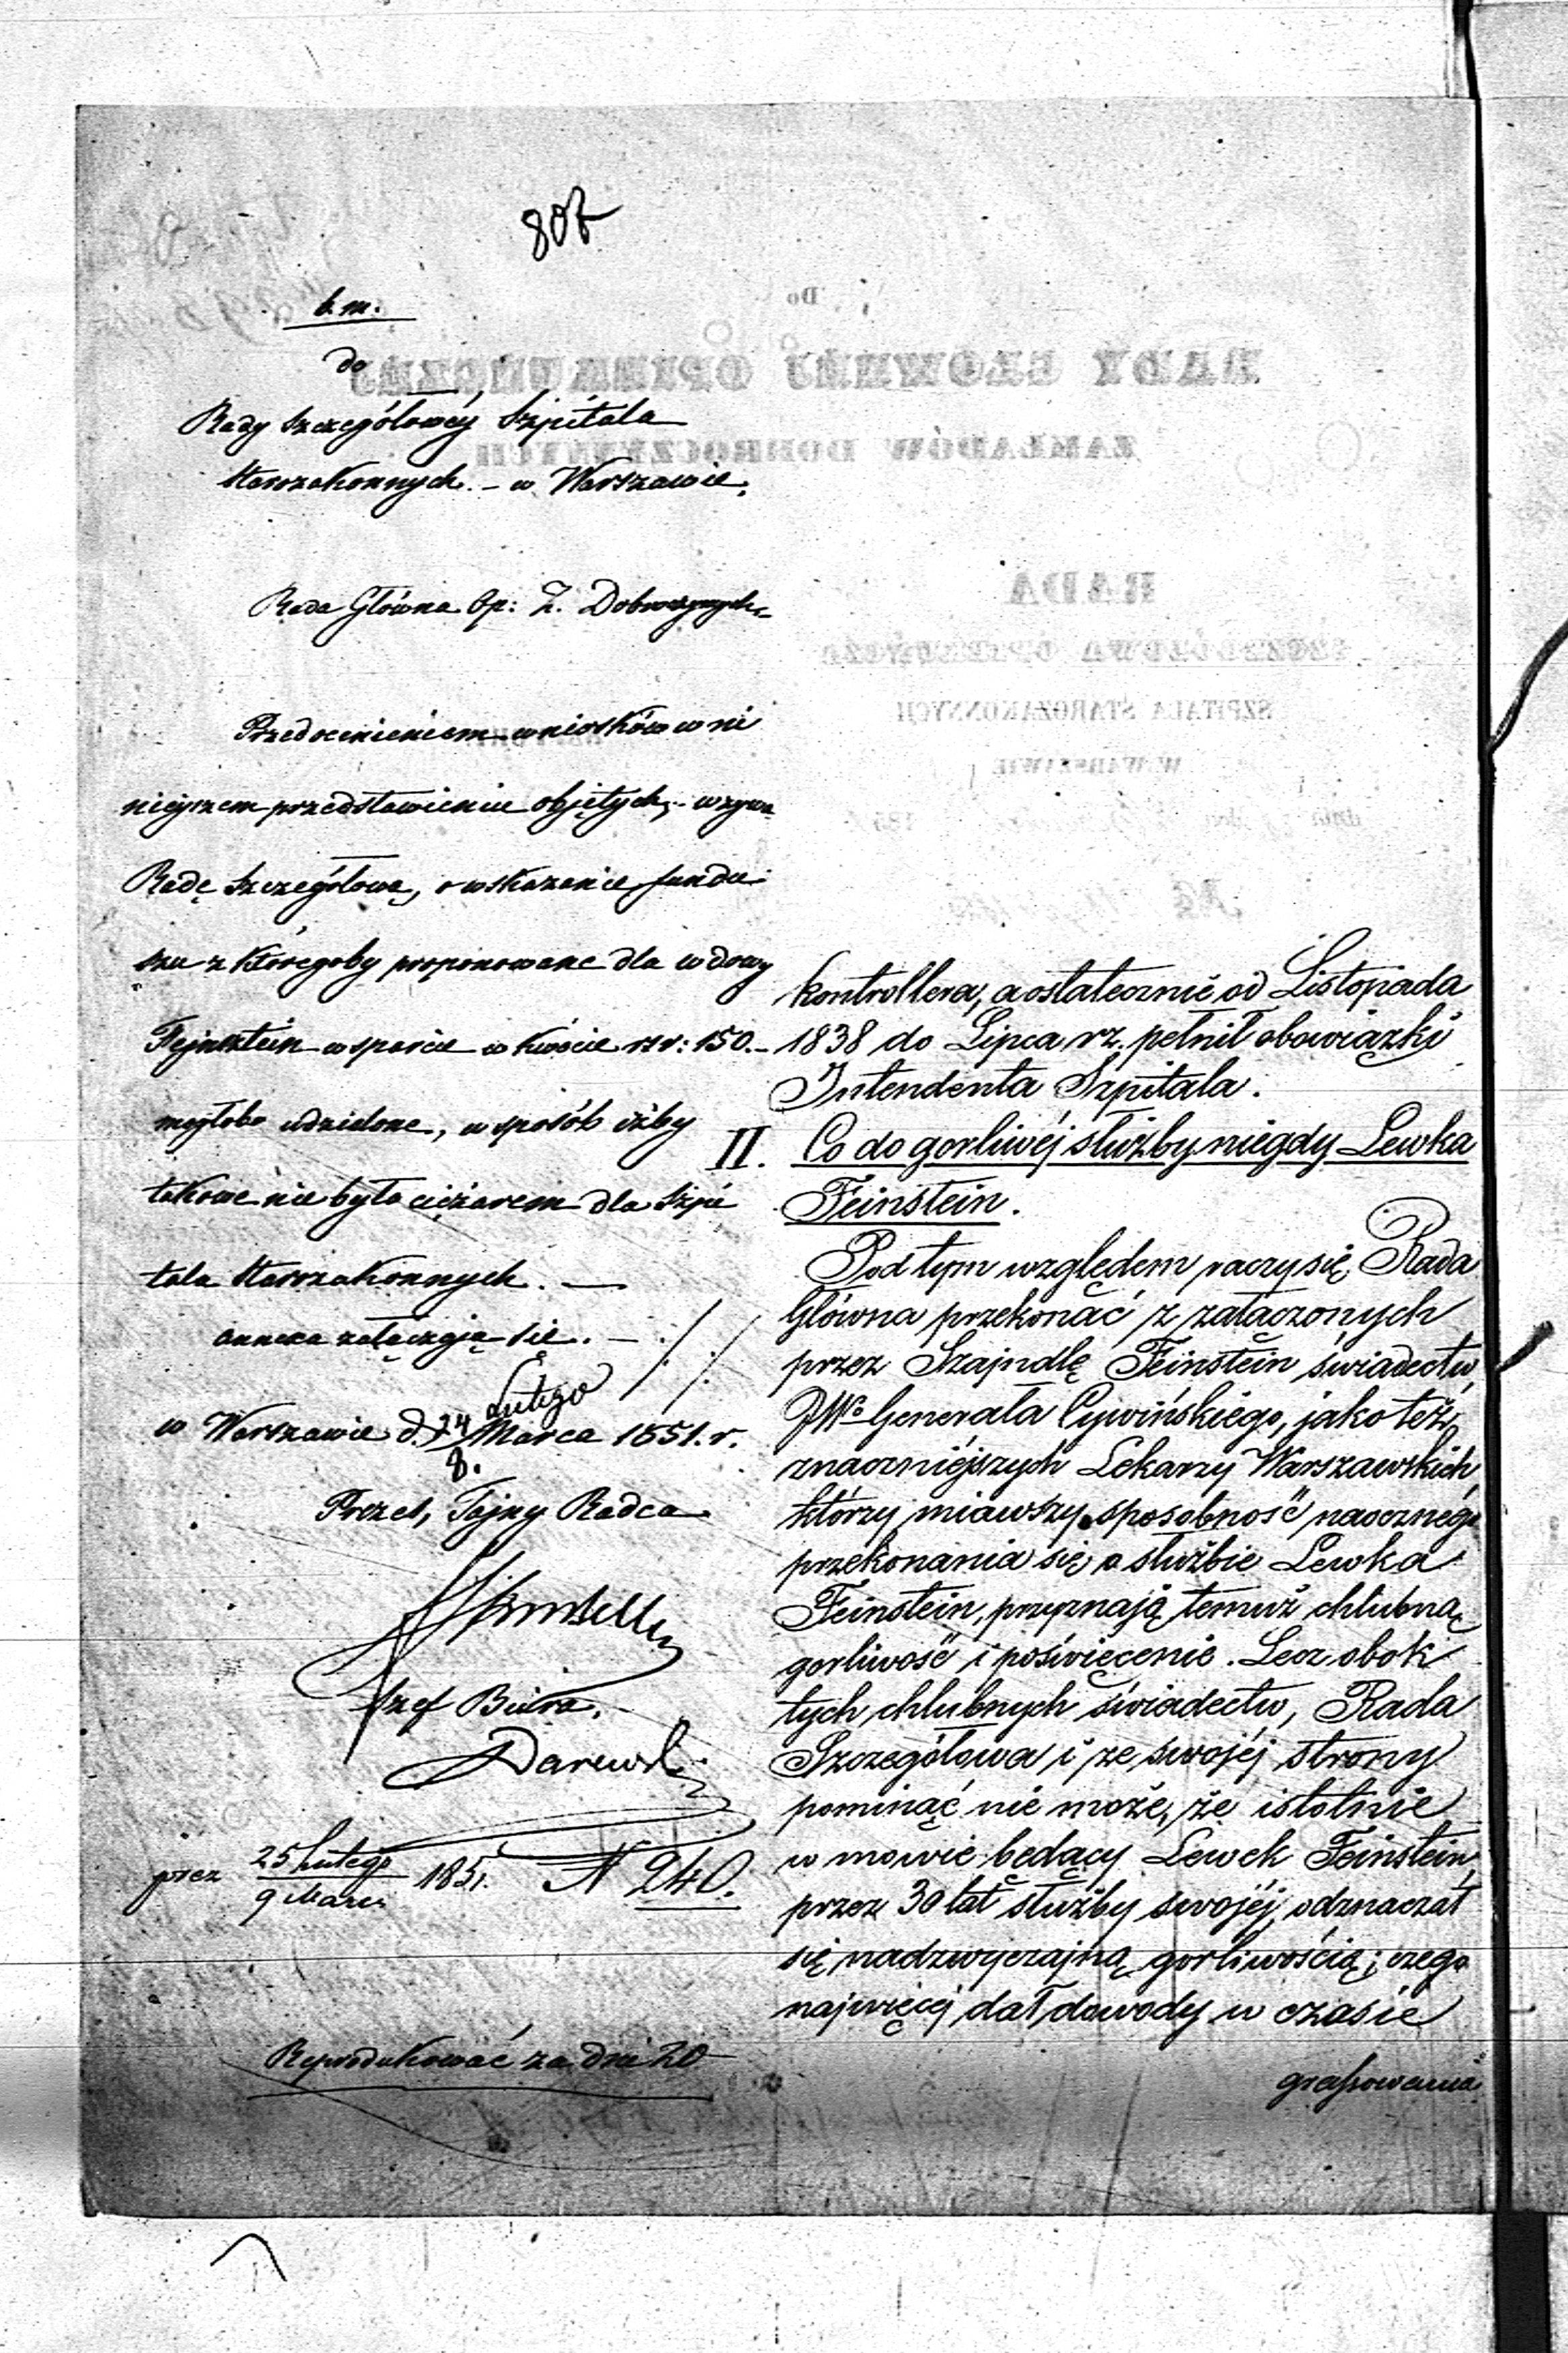 807
b. m.
do
Rady Szczegółowéj Szpitala
Starozakonnych. – w Warszawie.
Rada Główna Op: Z. Dobroczynnych
Przed ocenieniem wniosków w ni
niejszem przedstawieniu objętych, – wzywa
Radę Szczegółową, o wskazanie fundu
szu z któregoby proponowane dla wdowy
Fejnstein wsparcie w kwocie rsr: 150. –
mogłobo udzielone, w sposób iżby
takowe nie było ciężarem dla Szpi
tala Starozakonnych. —
Annexa załączają się. –
w Warszawie d. 24 Lutego / 8. Marca 1851. r.
Prezes, Tajny Radca
Szef Biura,
przez 25 Lutego / 9 Marca 1851. N 240.
Reprodukować za dni 20
kontrollera, a ostatecznie od Listopada
1838 do Lipca rz. pełnił obowiązki
Intendenta Szpitala.
II. Co do gorliwéj służby niegdy Lewka
Feinstein.
Pod tym względem raczy się Rada
Główna przekonać z załączonych
przez Szajndlę Feinstein świadectw,
JWo Generała Cywińskiego, jakoteż
znaczniéjszych Lekarzy Warszawskich,
którzy miawszy sposobność naocznego
przekonania się o służbie Lewka
Feinstein, przyznają temuż chlubną
gorliwość i poświęcenie. Lecz obok
tych chlubnych świadectw, Rada
Szczegółowa i ze swojéj strony
pominąć nie może, że istotnie
w mowie będący Lewek Feinstein,
przez 30 lat służby swojéj, odznaczał
się nadzwyczajną gorliwością; czego
najwięcéj dał dowody w czasie
grassowania